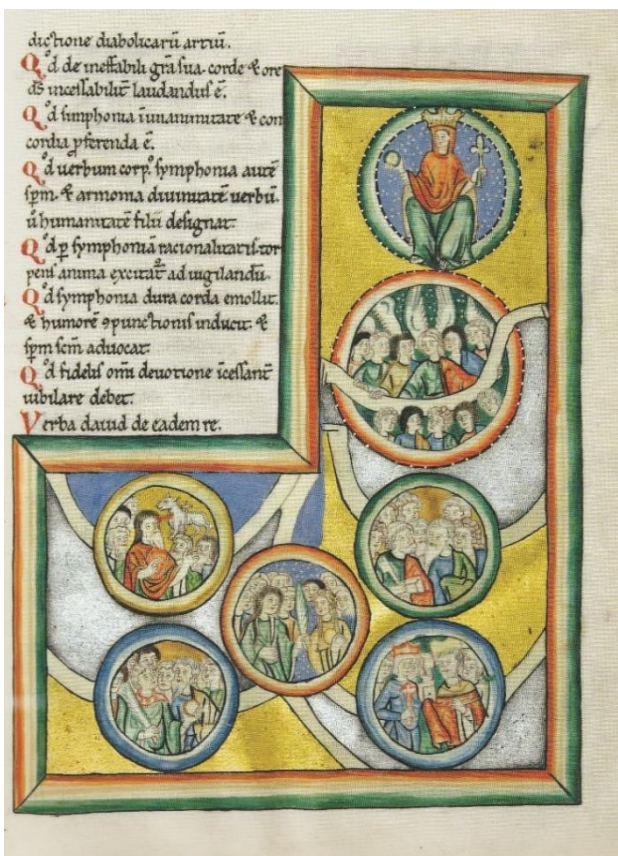 dictione diabolicarū artiū.
Qd de ineffabili grā sua. corde & ore
dš incessabilit laudandus ē.
Qd simphonia ī unanimitate & con
cordia pferenda ē.
Qd uerbum corp. symphonia autē
spm. & armonia diuinitatē uerbū.
ū humanitatē filii designat.
Qd p symphoniā racionalitatis tor
pens anima excitat ad uigilandū.
Qd symphonia dura corda emollit.
& humorē ꝯpunctionis inducit. &
spm scm aduocat.
Qd fidelis omi deuotione īcessant
iubilare debet.
Verba dauid de eadem re.